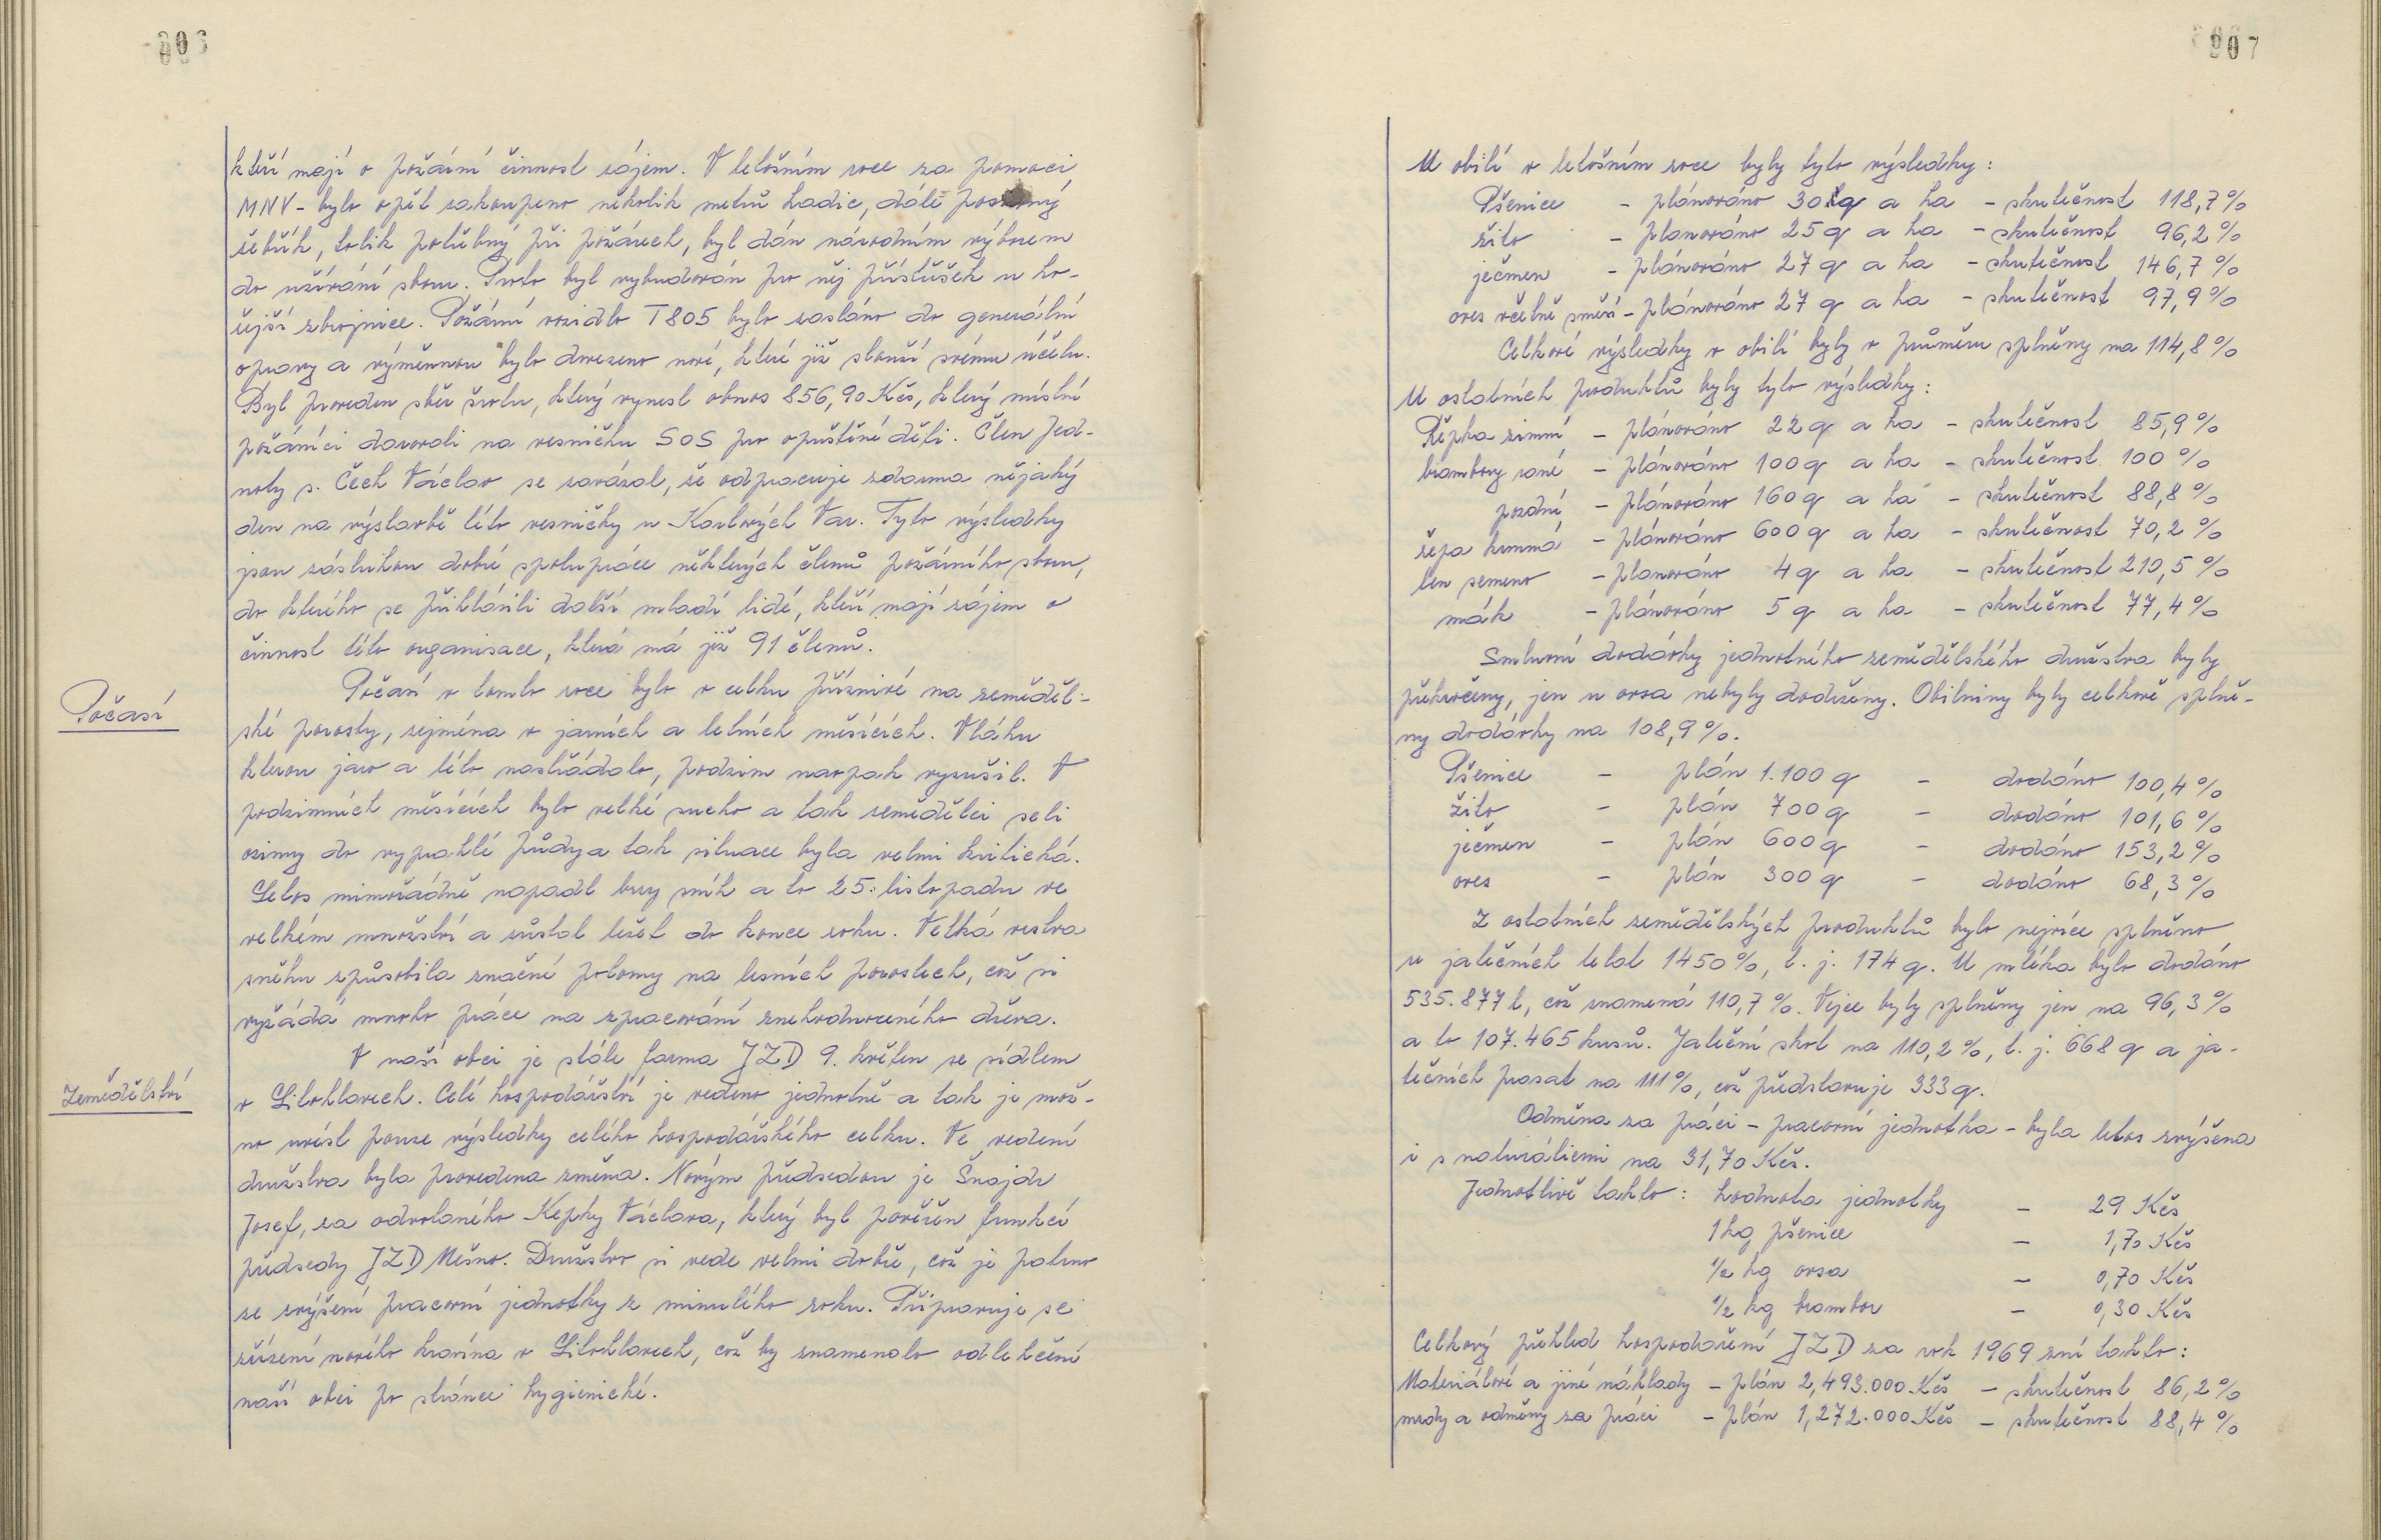 kteří mají o požární činnost zájem. V letošním roce za pomoci
MNV - bylo opět zakoupeno několik metrů hadic, dále
žebřík, tolik potřebný při požárech, byl dán národním výborem
do užívání sboru. Proto byl vybudován pro něj přístřešek u ho-
řejší zbrojnice. Požární vozidlo T805 bylo zasláno do generální
opravy a výměnnou bylo dovezeno nové, které již slouží svému účelu.
Byl proveden sběr šrotu, který vynesl obnos 856,90 Kčs, který místní
požárníci darovali na vesničku SOS pro opuštěné děti. Člen Jed-
noty s. Čech Václav se zavázal, že odpracuje zdarma nějaký
den na výstavbě této vesničky u Karlových Var. Tyto výsledky
jsou zásluhou dobré spolupráce některých členů požárního sboru,
do kterého se přihlásili další mladí lidé, kteří mají zájem o
činnost této organisace, která má již 91 členů.
Počasí
Počasí v tomto roce bylo v celku příznivé na zeměděl-
ské porosty, zejména v jarních a letních měsících. Vláhu
kterou jaro a léto nastřádalo, podzim naopak vysušil. V
podzimních měsících bylo velké sucho a tak zemědělci seli
ozimy do vyprahlé půdy a tak situace byla velmi kritická.
Letos mimořádně napadl brzy sníh a to 25. listopadu ve
velkém množství a zůstal ležet do konce roku. Velká vrstva
sněhu způsobila značné polomy na lesních porostech, což si
vyžádá mnoho práce na zpracování znehodnoceného dřeva.
Zemědělství
V naší obci je stále farma JZD 9. květen se sídlem
v Litohlavech. Celé hospodářství je vedeno jednotně a tak je mož-
no uvést pouze výsledky celého hospodářského celku. Ve vedení
družstva byla provedena změna. Novým předsedou je Šnajdr
Josef, za odvolaného Kepky Václava, který byl pověřen funkcí
předsedy JZD Mešno. Družstvo si vede velmi dobře, což je patrno
ze zvýšení pracovní jednotky z minulého roku. Připravuje se
zřízení nového kravína v Litohlavech, což by znamenalo odlehčení
naší obci po stránce hygienické.
U obilí v letošním roce byly tyto výsledky:
Pšenice - plánováno 30 q a ha - skutečnost 118,7%
žito - plánováno 25 q a ha - skutečnost 96,2%
ječmen - plánováno 27 q a ha - skutečnost 146,7%
oves včetně směsí - plánováno 27 q a ha - skutečnost 97,9%
Celkové výsledky v obilí byly v průměru splněny na 114,8%
U ostatních produktů byly tyto výsledky:
Řepka zimní - plánováno 22 q a ha - skutečnost 85,9%
brambory rané - plánováno 100 q a ha - skutečnost 100%
pozdní - plánováno 160 q a ha - skutečnost 88,8%
řepa krmná - plánováno 600 q a ha - skutečnost 70,2%
len semeno - plánováno 4 q a ha - skutečnost 210,5%
mák - plánováno 5 q a ha - skutečnost 77,4%
Smluvní dodávky jednotného zemědělského družstva byly
překročeny, jen u ovsa nebyly dodrženy. Obilniny byly celkově splně-
ny dodávky na 108,9%.
Pšenice - plán 1.100 q - dodáno 100,4%
žito - plán 700 q - dodáno 101,6%
ječmen - plán 600 q - dodáno 153,2%
oves - plán 300 q - dodáno 68,3%
Z ostatních zemědělských produktů bylo nejvíce splněno
u jatečních telat 1450%, t. j. 174 q. U mléka bylo dodáno
535.877 l, což znamená 110,7%. Vejce byly splněny jen na 96,3%
a to 107.465 kusů. Jateční skot na 110,2%, t. j. 668 q a ja-
tečních prasat na 111%, což představuje 333 q.
Odměna za práci - pracovní jednotka - byla letos zvýšena
i s naturáliemi na 31,70 Kčs.
Jednotlivě takto: hodnota jednotky - 29 Kčs
1 kg pšenice - 1,70 Kčs
1/2 kg ovsa - 0,70 Kčs
1/2 kg brambor - 0,30 Kčs
Celkový přehled hospodaření JZD za rok 1969 zní takto:
Materiálové a jiné náklady - plán 2,493.000 Kčs - skutečnost 86,2%
mzdy a odměny za práci - plán 1,272.000 Kčs - skutečnost 88,4%